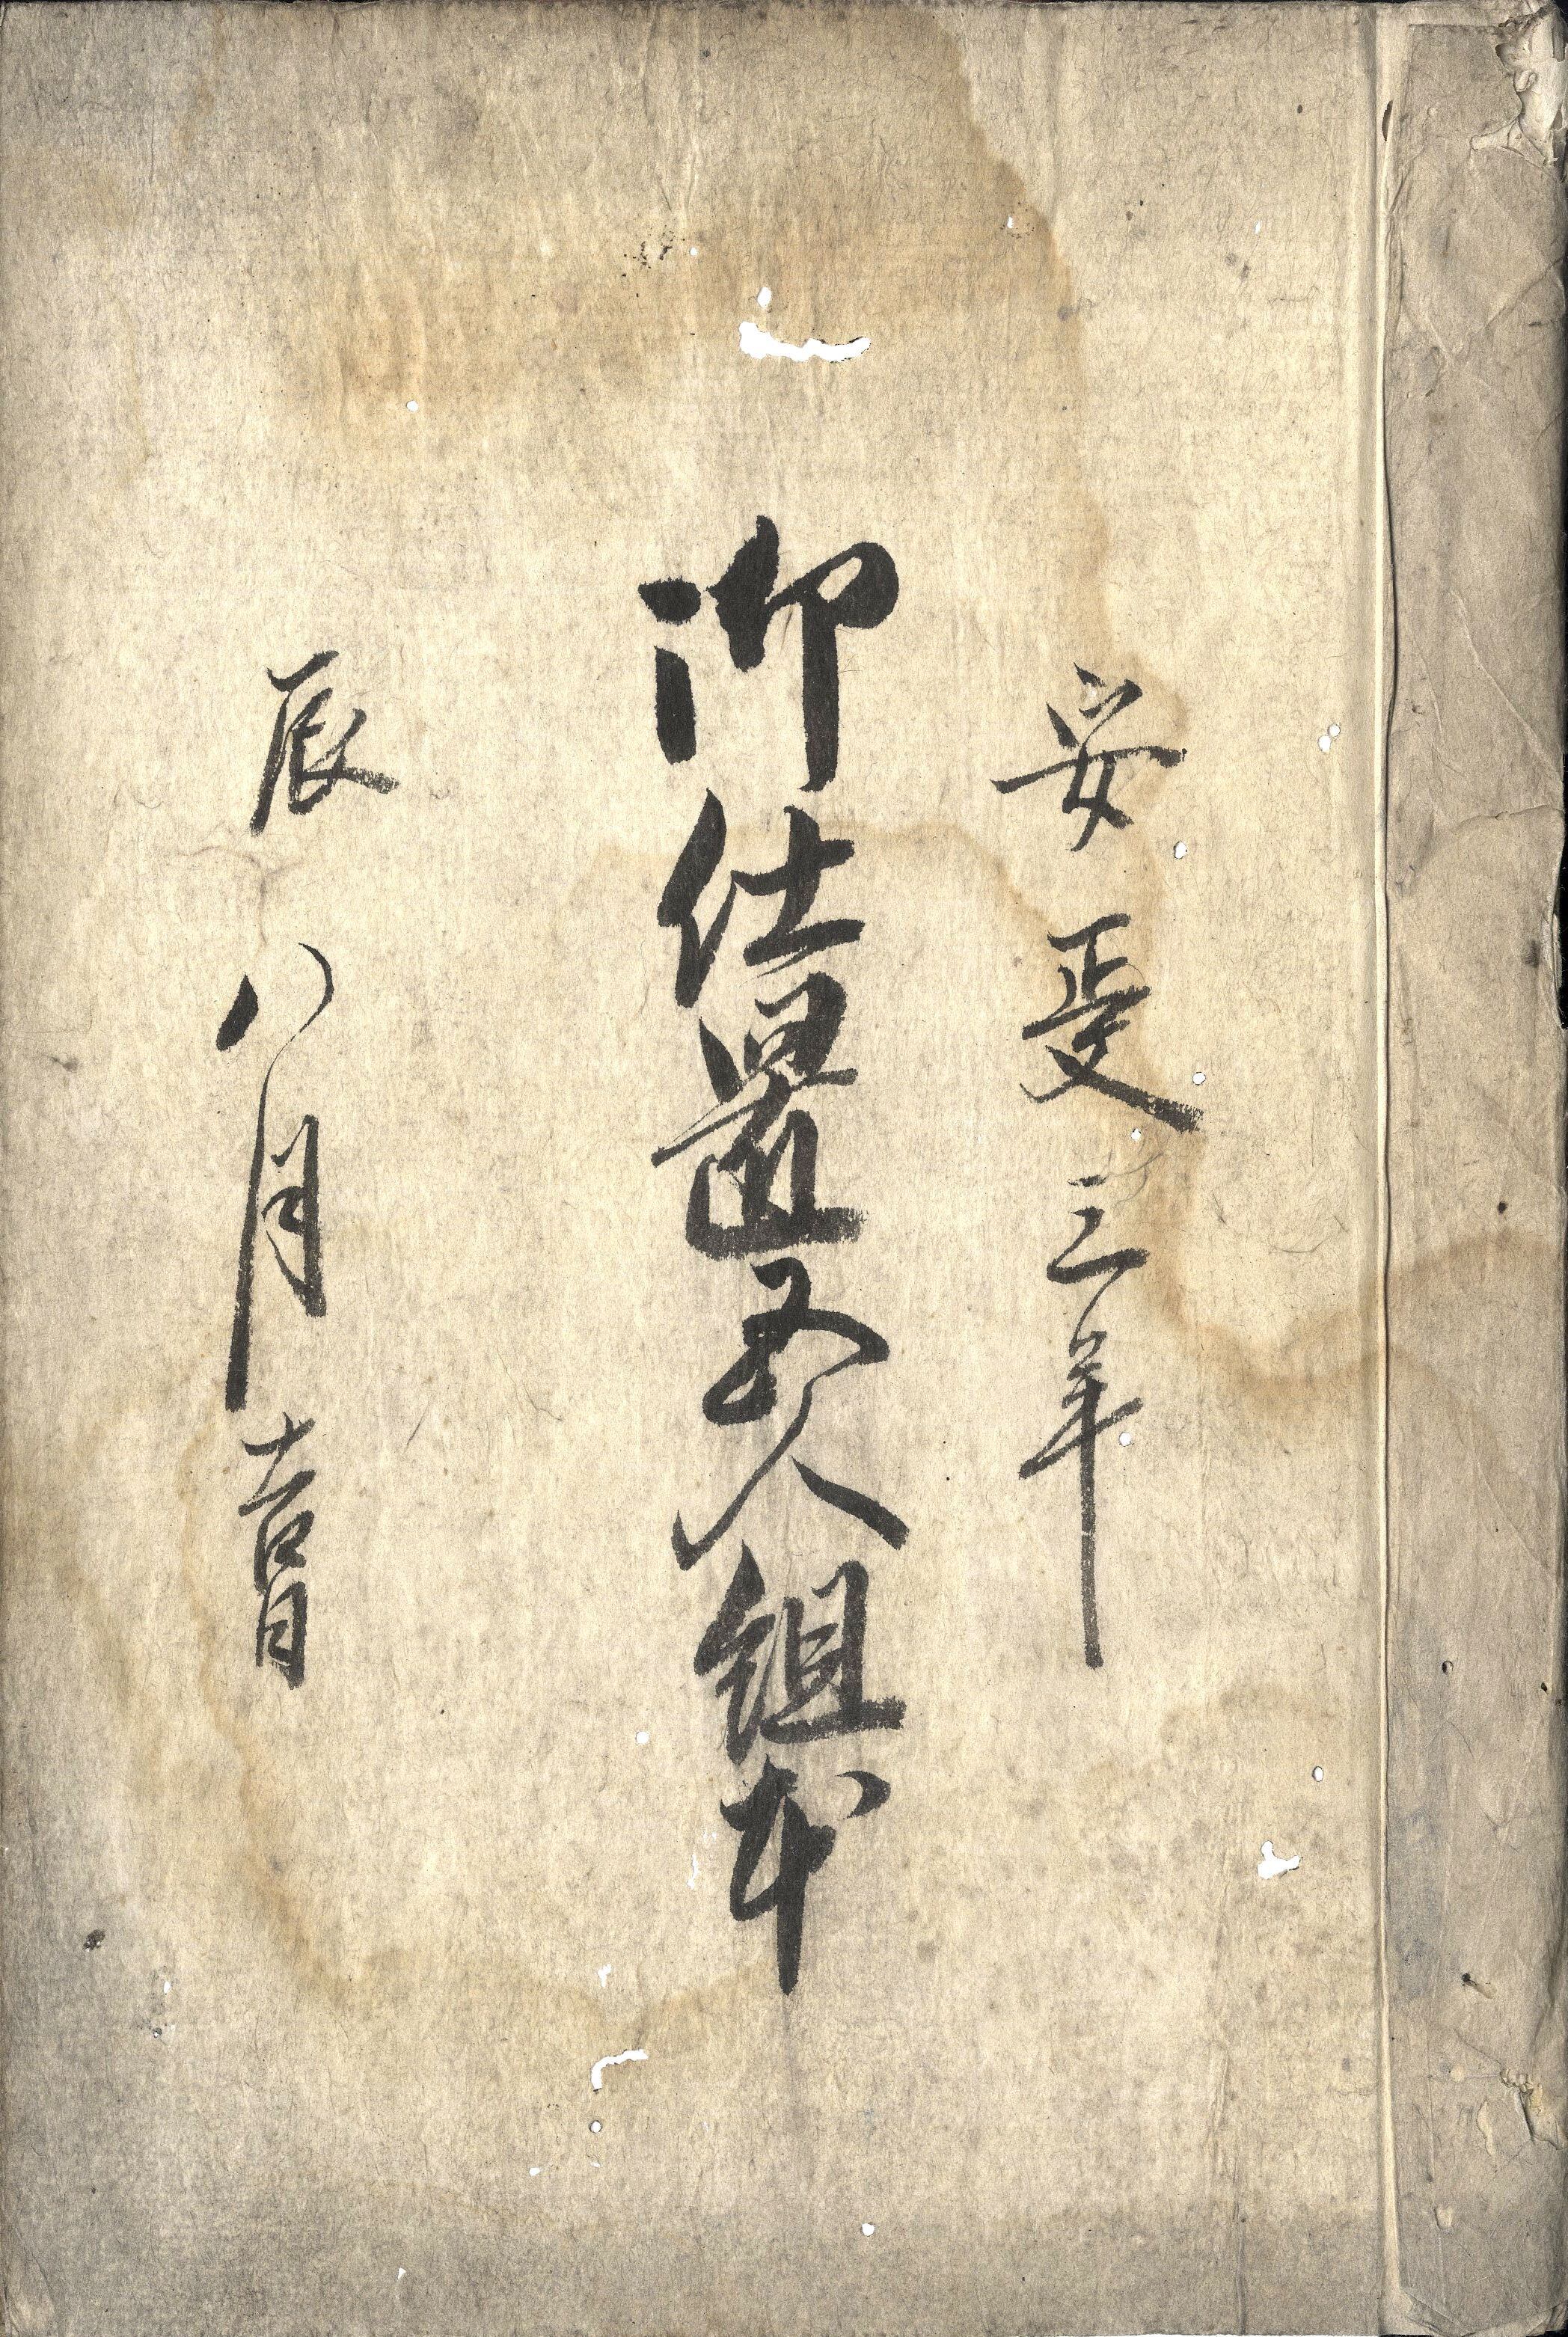 安政三年
御仕置五人組帳
辰八月吉日